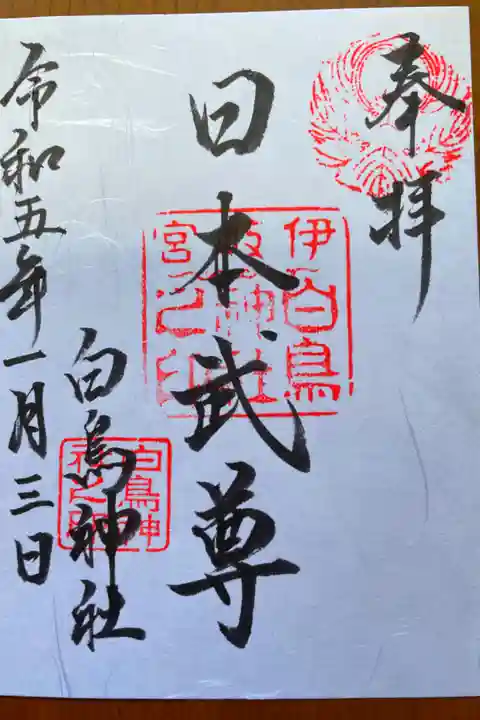 奉拝
日本武尊
白鳥神社
令和五年一月三日
伊白鳥
神社
宮之印
白鳥神